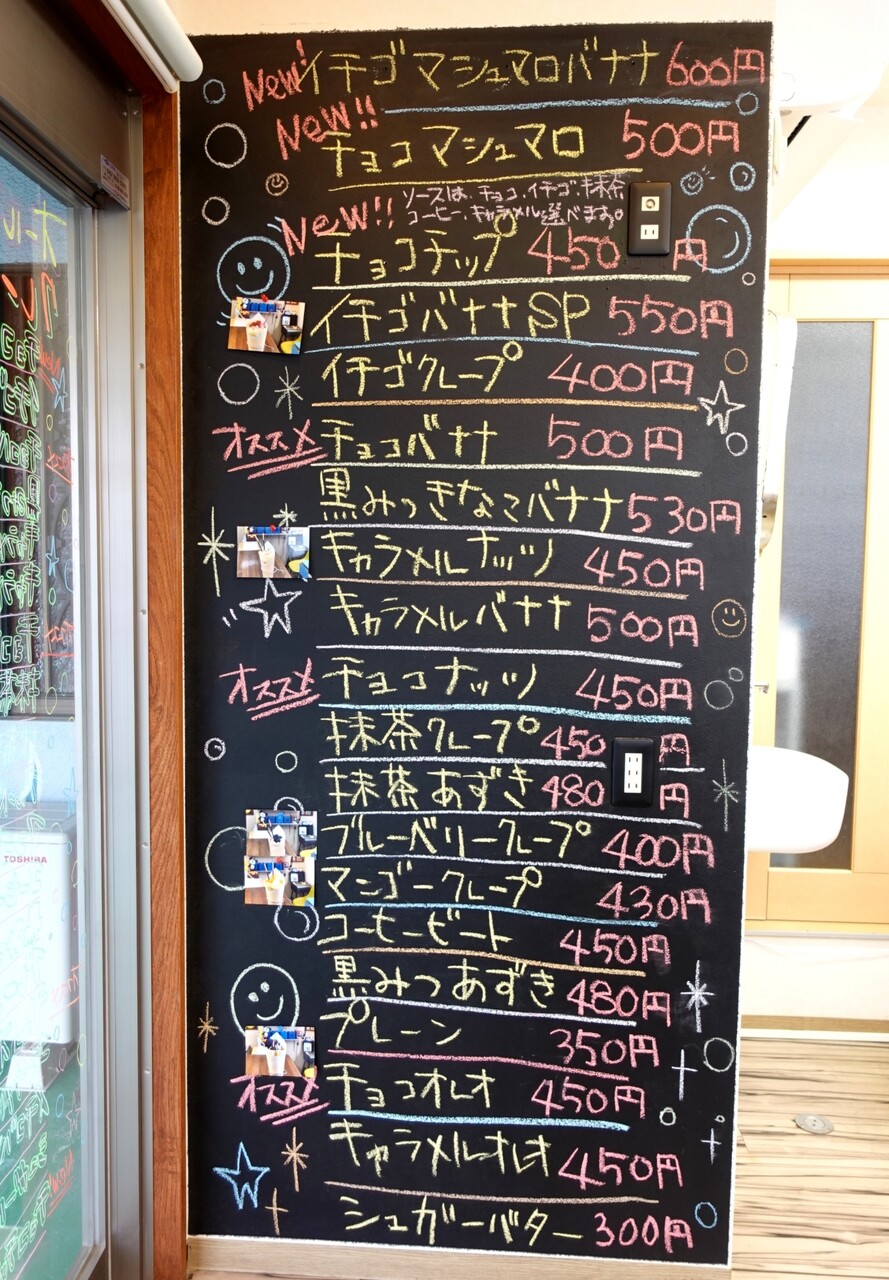 New! イチゴマシュマロバナナ 600円
New!! チョコマシュマロ 500円
ソースは、チョコ、イチゴ、抹茶
コーヒー、キャラメル選べます。
New!! チョコチップ 450円
イチゴバナナSP 550円
イチゴクレープ 400円
オススメ チョコバナナ 500円
黒みつきなこバナナ 530円
キャラメルナッツ 450円
キャラメルバナナ 500円
オススメ チョコナッツ 450円
抹茶クレープ 450円
抹茶あずき 480円
ブルーベリークレープ 400円
マンゴークレープ 430円
コーヒービート 450円
黒みつあずき 480円
プレーン 350円
オススメ チョコオレオ 450円
キャラメルオレオ 450円
シュガーバター 300円
TOSHIBA